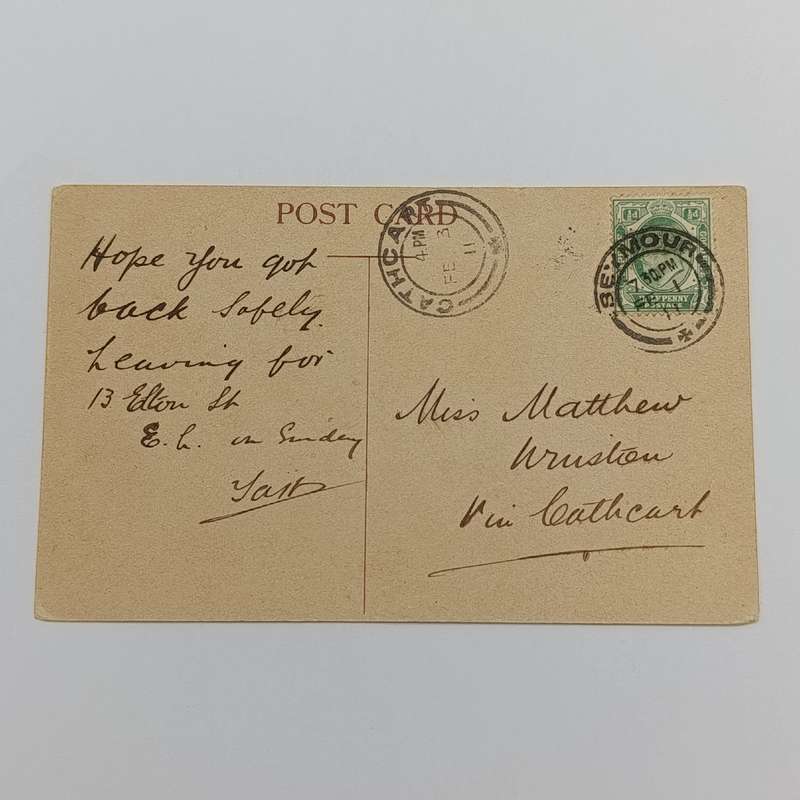 POST CARD
CATHCART
4 PM
FE 3
11
½d
SEYMOUR
7.30 PM
1
11
HALFPENNY
POSTAGE
Hope you got
back safely.
Leaving for
13 Elton St
E.L. on Sunday
Miss Matthew
Via Cathcart